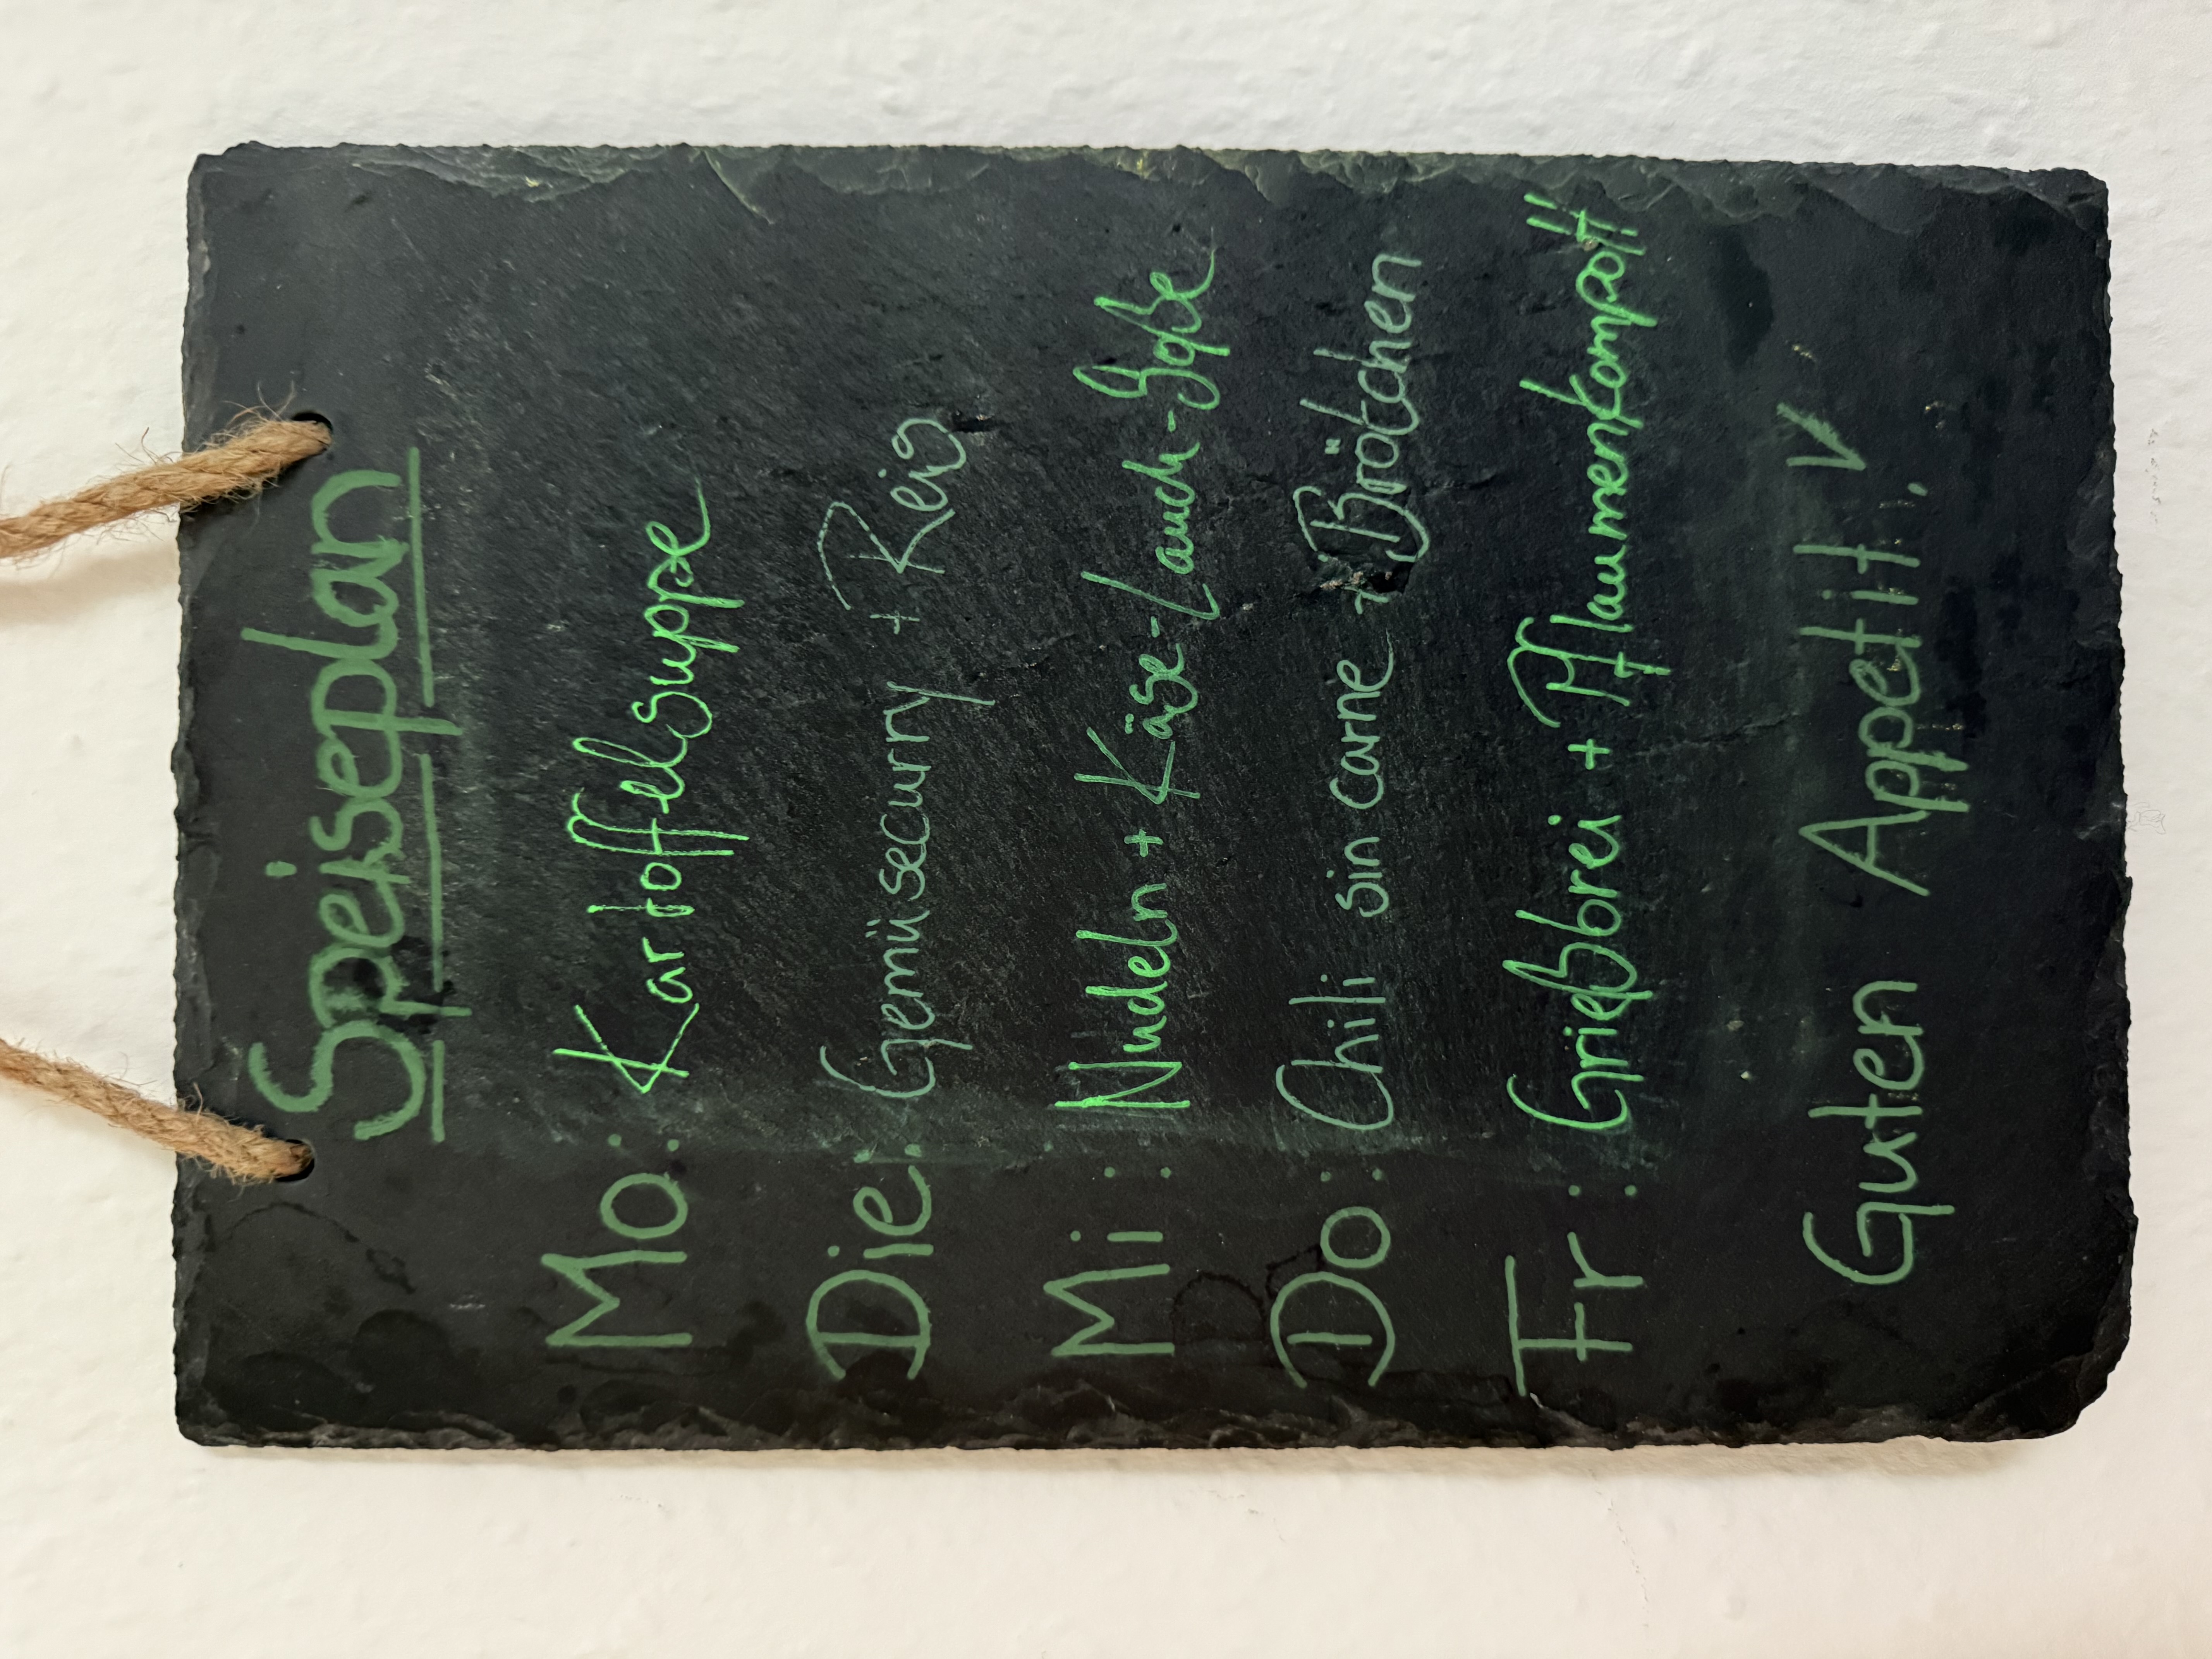 Speiseplan
Mo: Kartoffelsuppe
Die: Gemüsecurry + Reis
Mi: Nudeln + Käse-Lauch-Soße
Do: Chili sin carne + Brötchen
Fr: Grießbrei + Pflaumenkompott
Guten Appetit!